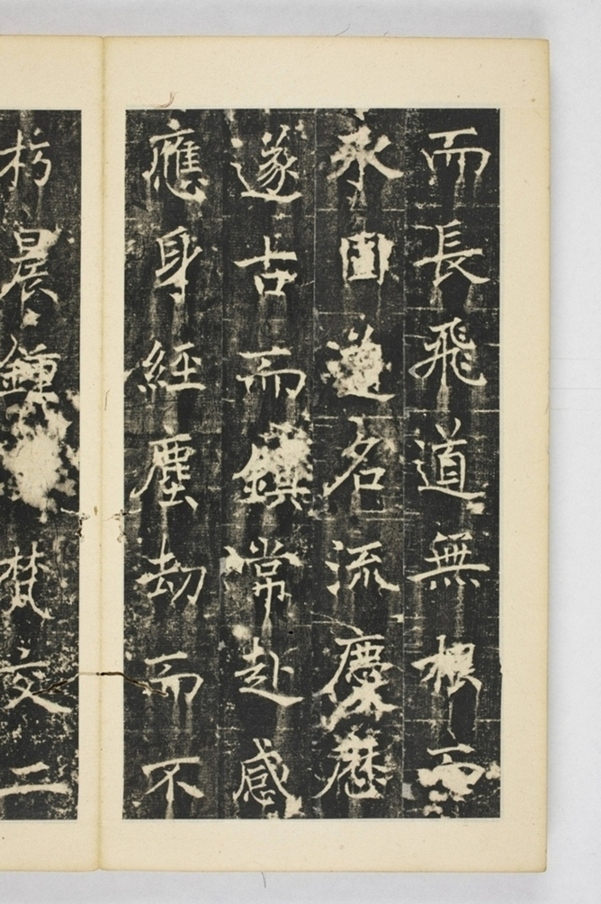 而長飛道無根而
永固道名流慶歷
遂古而鎮常赴感
應身經塵劫而不
朽晨鍾梵交二